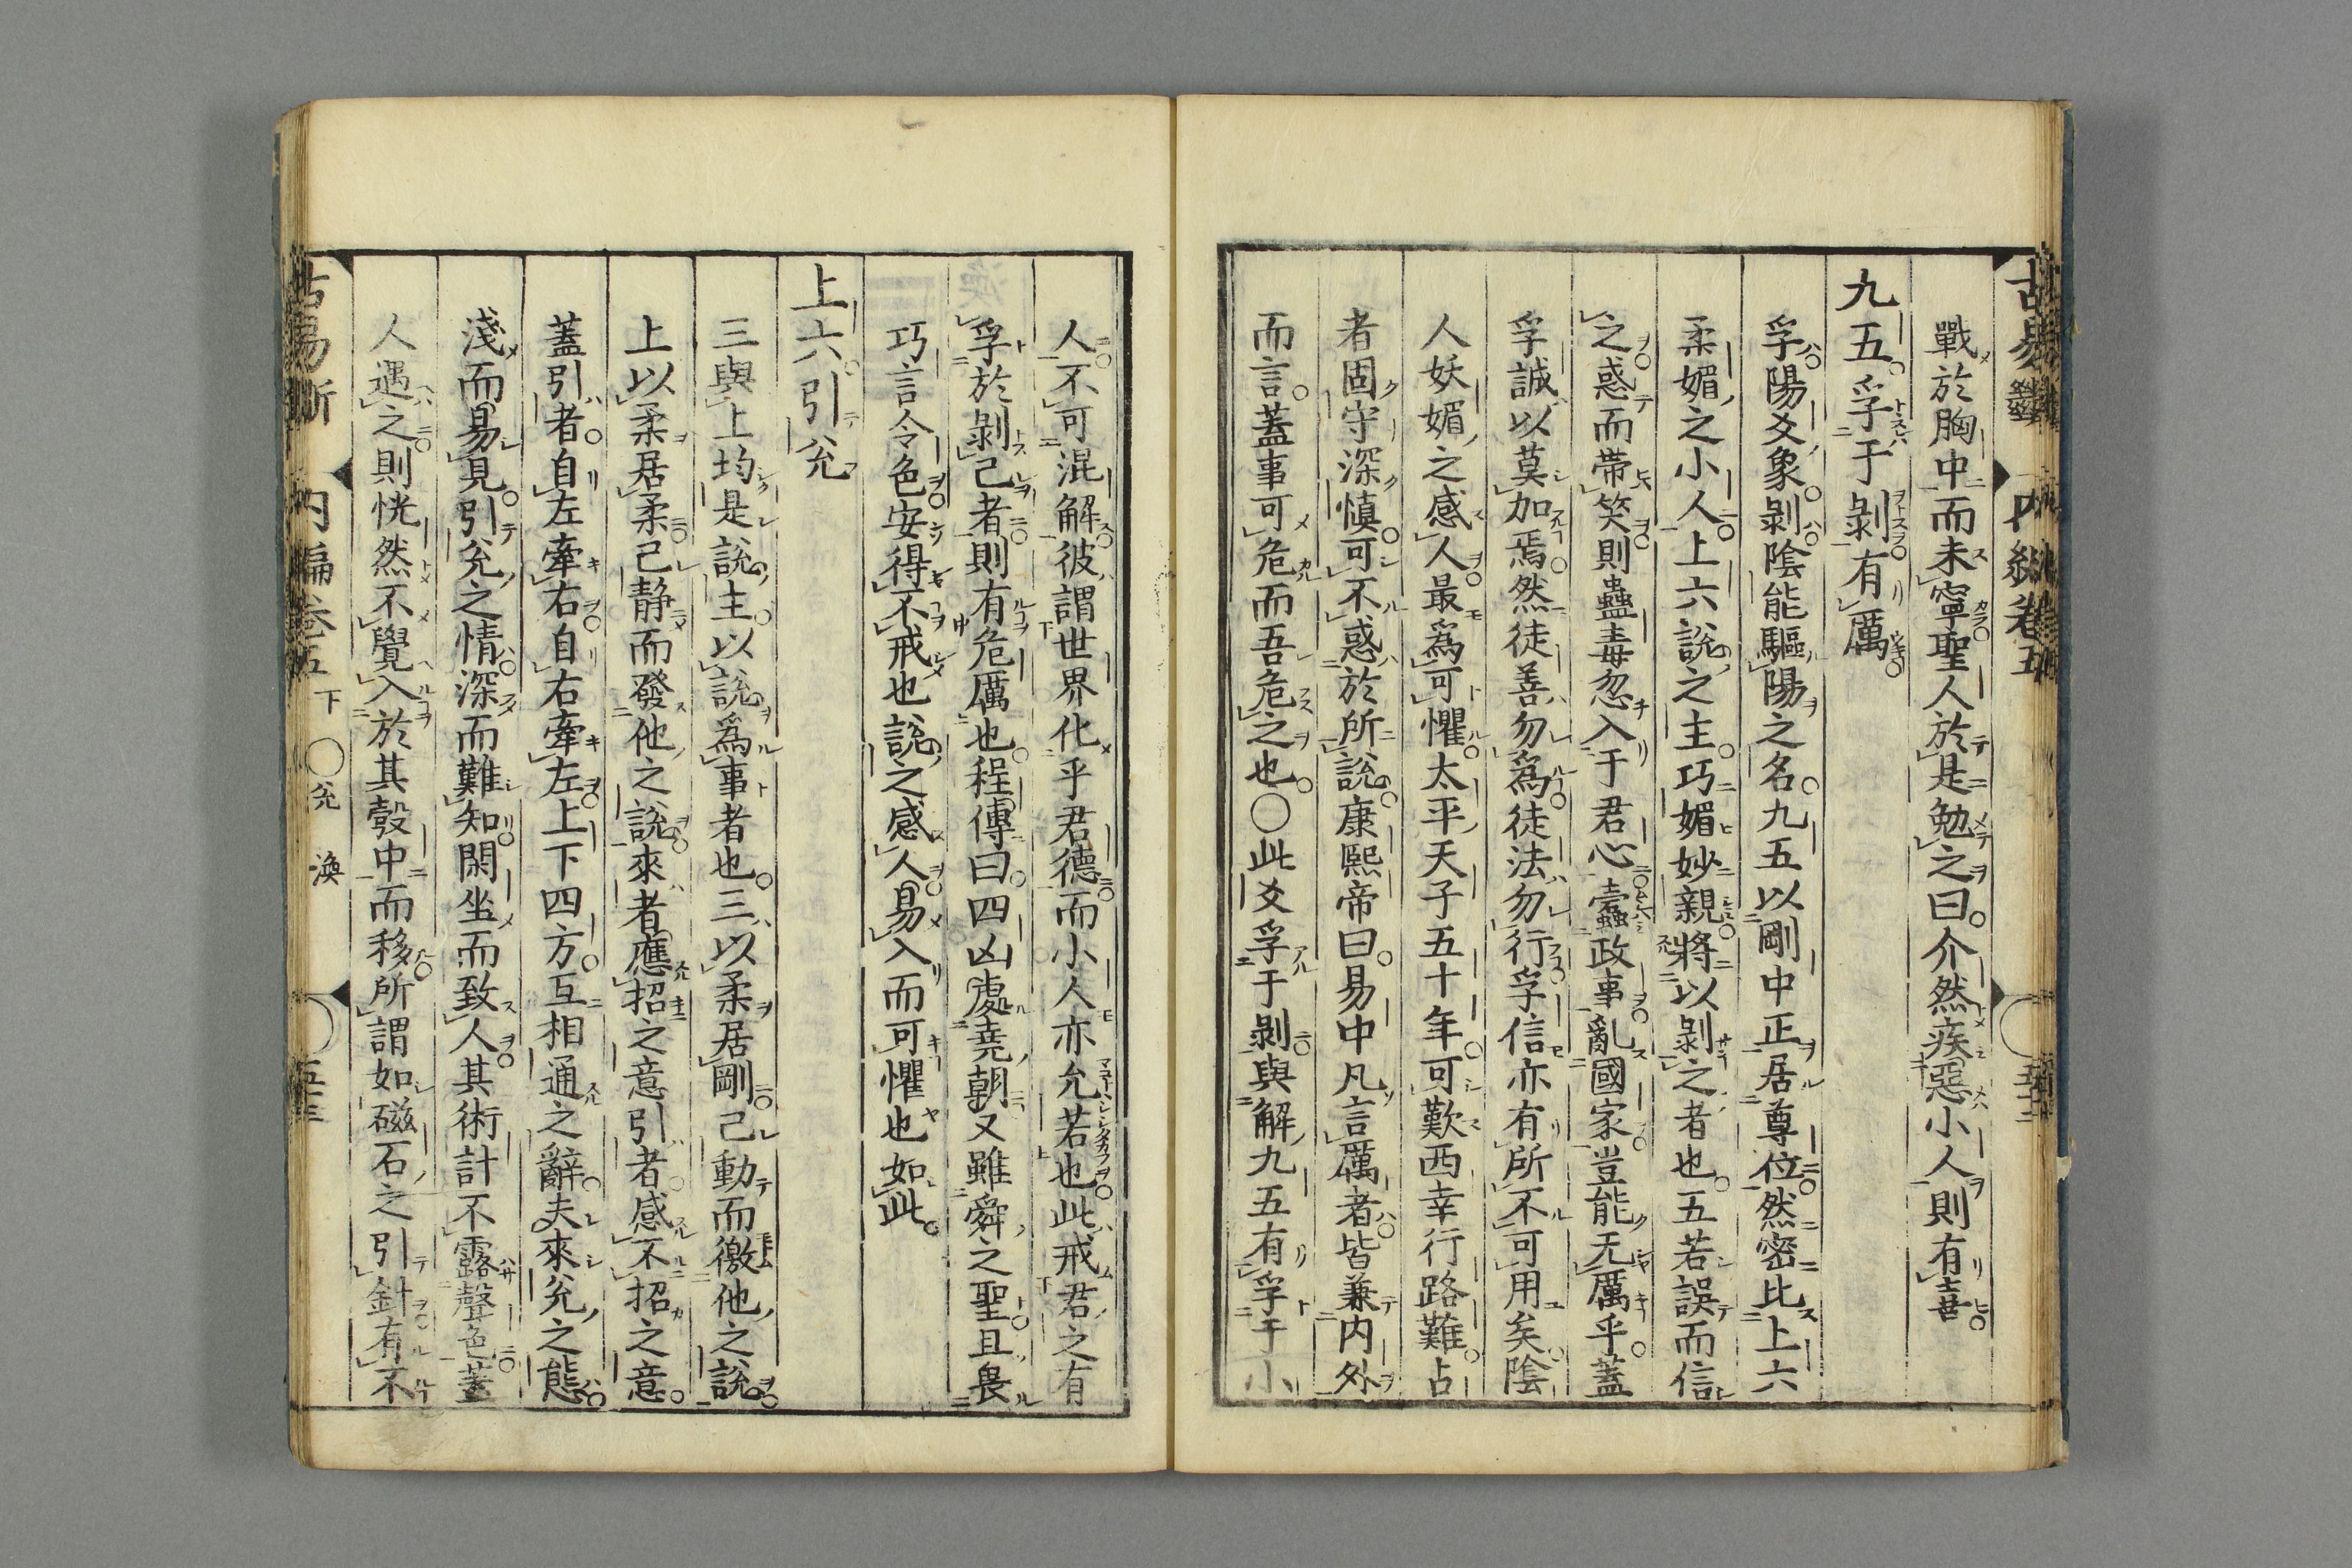 戰於胸中而未寧聖人於是勉之曰介然疾惡小人則有喜
九五孚于剝有厲
孚陽爻象剝陰能驅陽之名九五以剛中正居尊位然密比上六
柔媚之小人上六說之主巧媚妙親將以剝之者也五若誤而信
之惑而帶笑則蠱毒忽入于君心蠹政事亂國家豈能无厲乎蓋
孚誠以莫加焉然徒善勿爲徒法勿行孚信亦有所不可用矣陰
人妖媚之感人最爲可懼太平天子五十年可歎西幸行路難占
者固守深慎可不惑於所說康熙帝曰易中凡言厲者皆兼內外
而言蓋事可危而吾危之也○此爻孚于剝與解九五有孚于小
人不可混解彼謂世界化乎君德而小人亦允若也此戒君之有
孚於剝己者則有危厲也程傳曰四凶處堯朝又雖舜之聖且畏
巧言令色安得不戒也說之感人易入而可懼也如此
上六引兌
三與上均是說主以說爲事者也三以柔居剛己動而徼他之說
上以柔居柔己静而發他之說來者應招之意引者感不招之意
蓋引者自左牽右自右牽左上下四方互相通之辭夫來兌之態
淺而易見引兌之情深而難知閑坐而致人其術計不露聲色蓋
人遇之則恍然不覺入於其彀中而移所謂如磁石之引針有不
古易斷 内編卷五 下 ○兌 渙 五十三